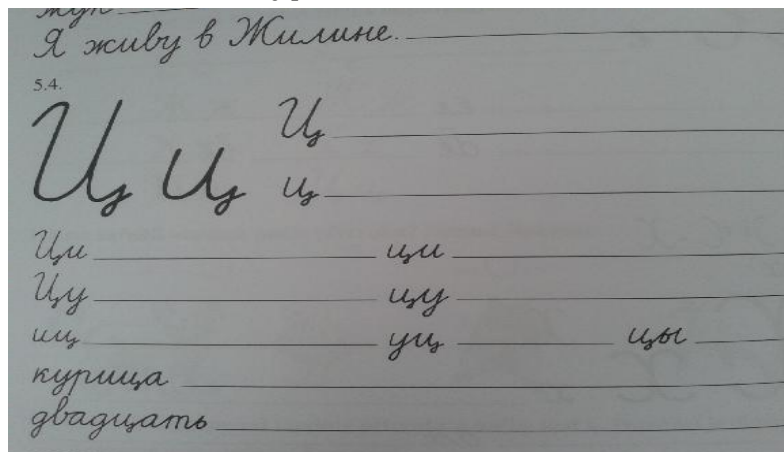 жук
Я живу в Жилине.
5.4.
Ц ц Ц
ц
Ци ци
Цу цу
иц уц цы
курица
двадцать